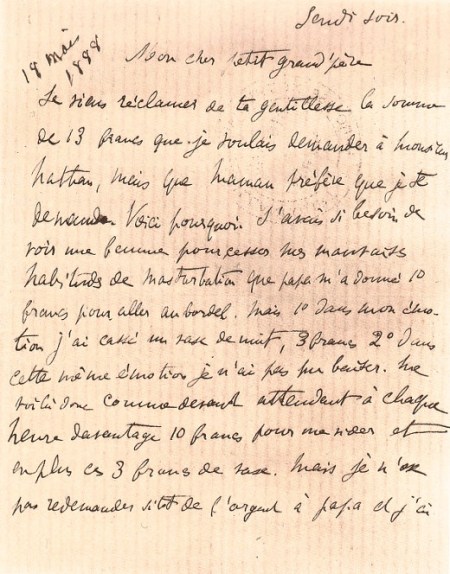 Jeudi soir.
18 mai 1888
Mon cher petit grand'père
Je viens réclamer de ta gentillesse la somme
de 13 francs que je voulais demander à Monsieur
Nathan, mais que Maman préfère que je te
demande. Voici pourquoi. J'avais si besoin de
voir une femme pour cesser mes mauvaises
habitudes de masturbation que papa m'a donné 10
francs pour aller au bordel. Mais 1° dans mon émo-
tion j'ai cassé un vase de nuit, 3 francs 2° dans
cette même émotion je n'ai pas pu baiser. Me
voilà donc comme devant attendant à chaque
heure davantage 10 francs pour me vider et
en plus ces 3 francs de vase. Mais je n'ose
pas redemander sitôt de l'argent à papa et j'ai